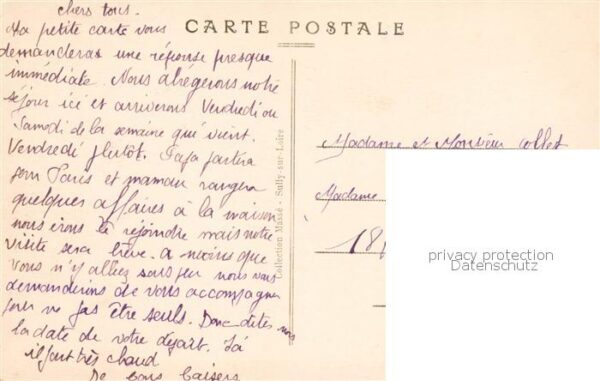 chers tous.
CARTE POSTALE
Ma petite carte vous
demandera une réponse presque
immédiate. Nous abrégerons notre
séjour ici et arriverons Vendredi ou
Samedi de la semaine qui vient.
Vendredi plutôt. Papa partira
pour Paris et maman rangera
quelques affaires à la maison
nous irons le rejoindre mais notre
visite sera brève. a moins que
vous n'y alliez sous peu nous vous
demanderions de vous accompagner
pour ne pas être seuls. Donc dites nous
la date de votre départ. Ici
il fait très chaud
De bons baisers
Collection Massé - Sully-sur-Loire
Madame et Monsieur Collet
Madame
privacy protection
Datenschutz